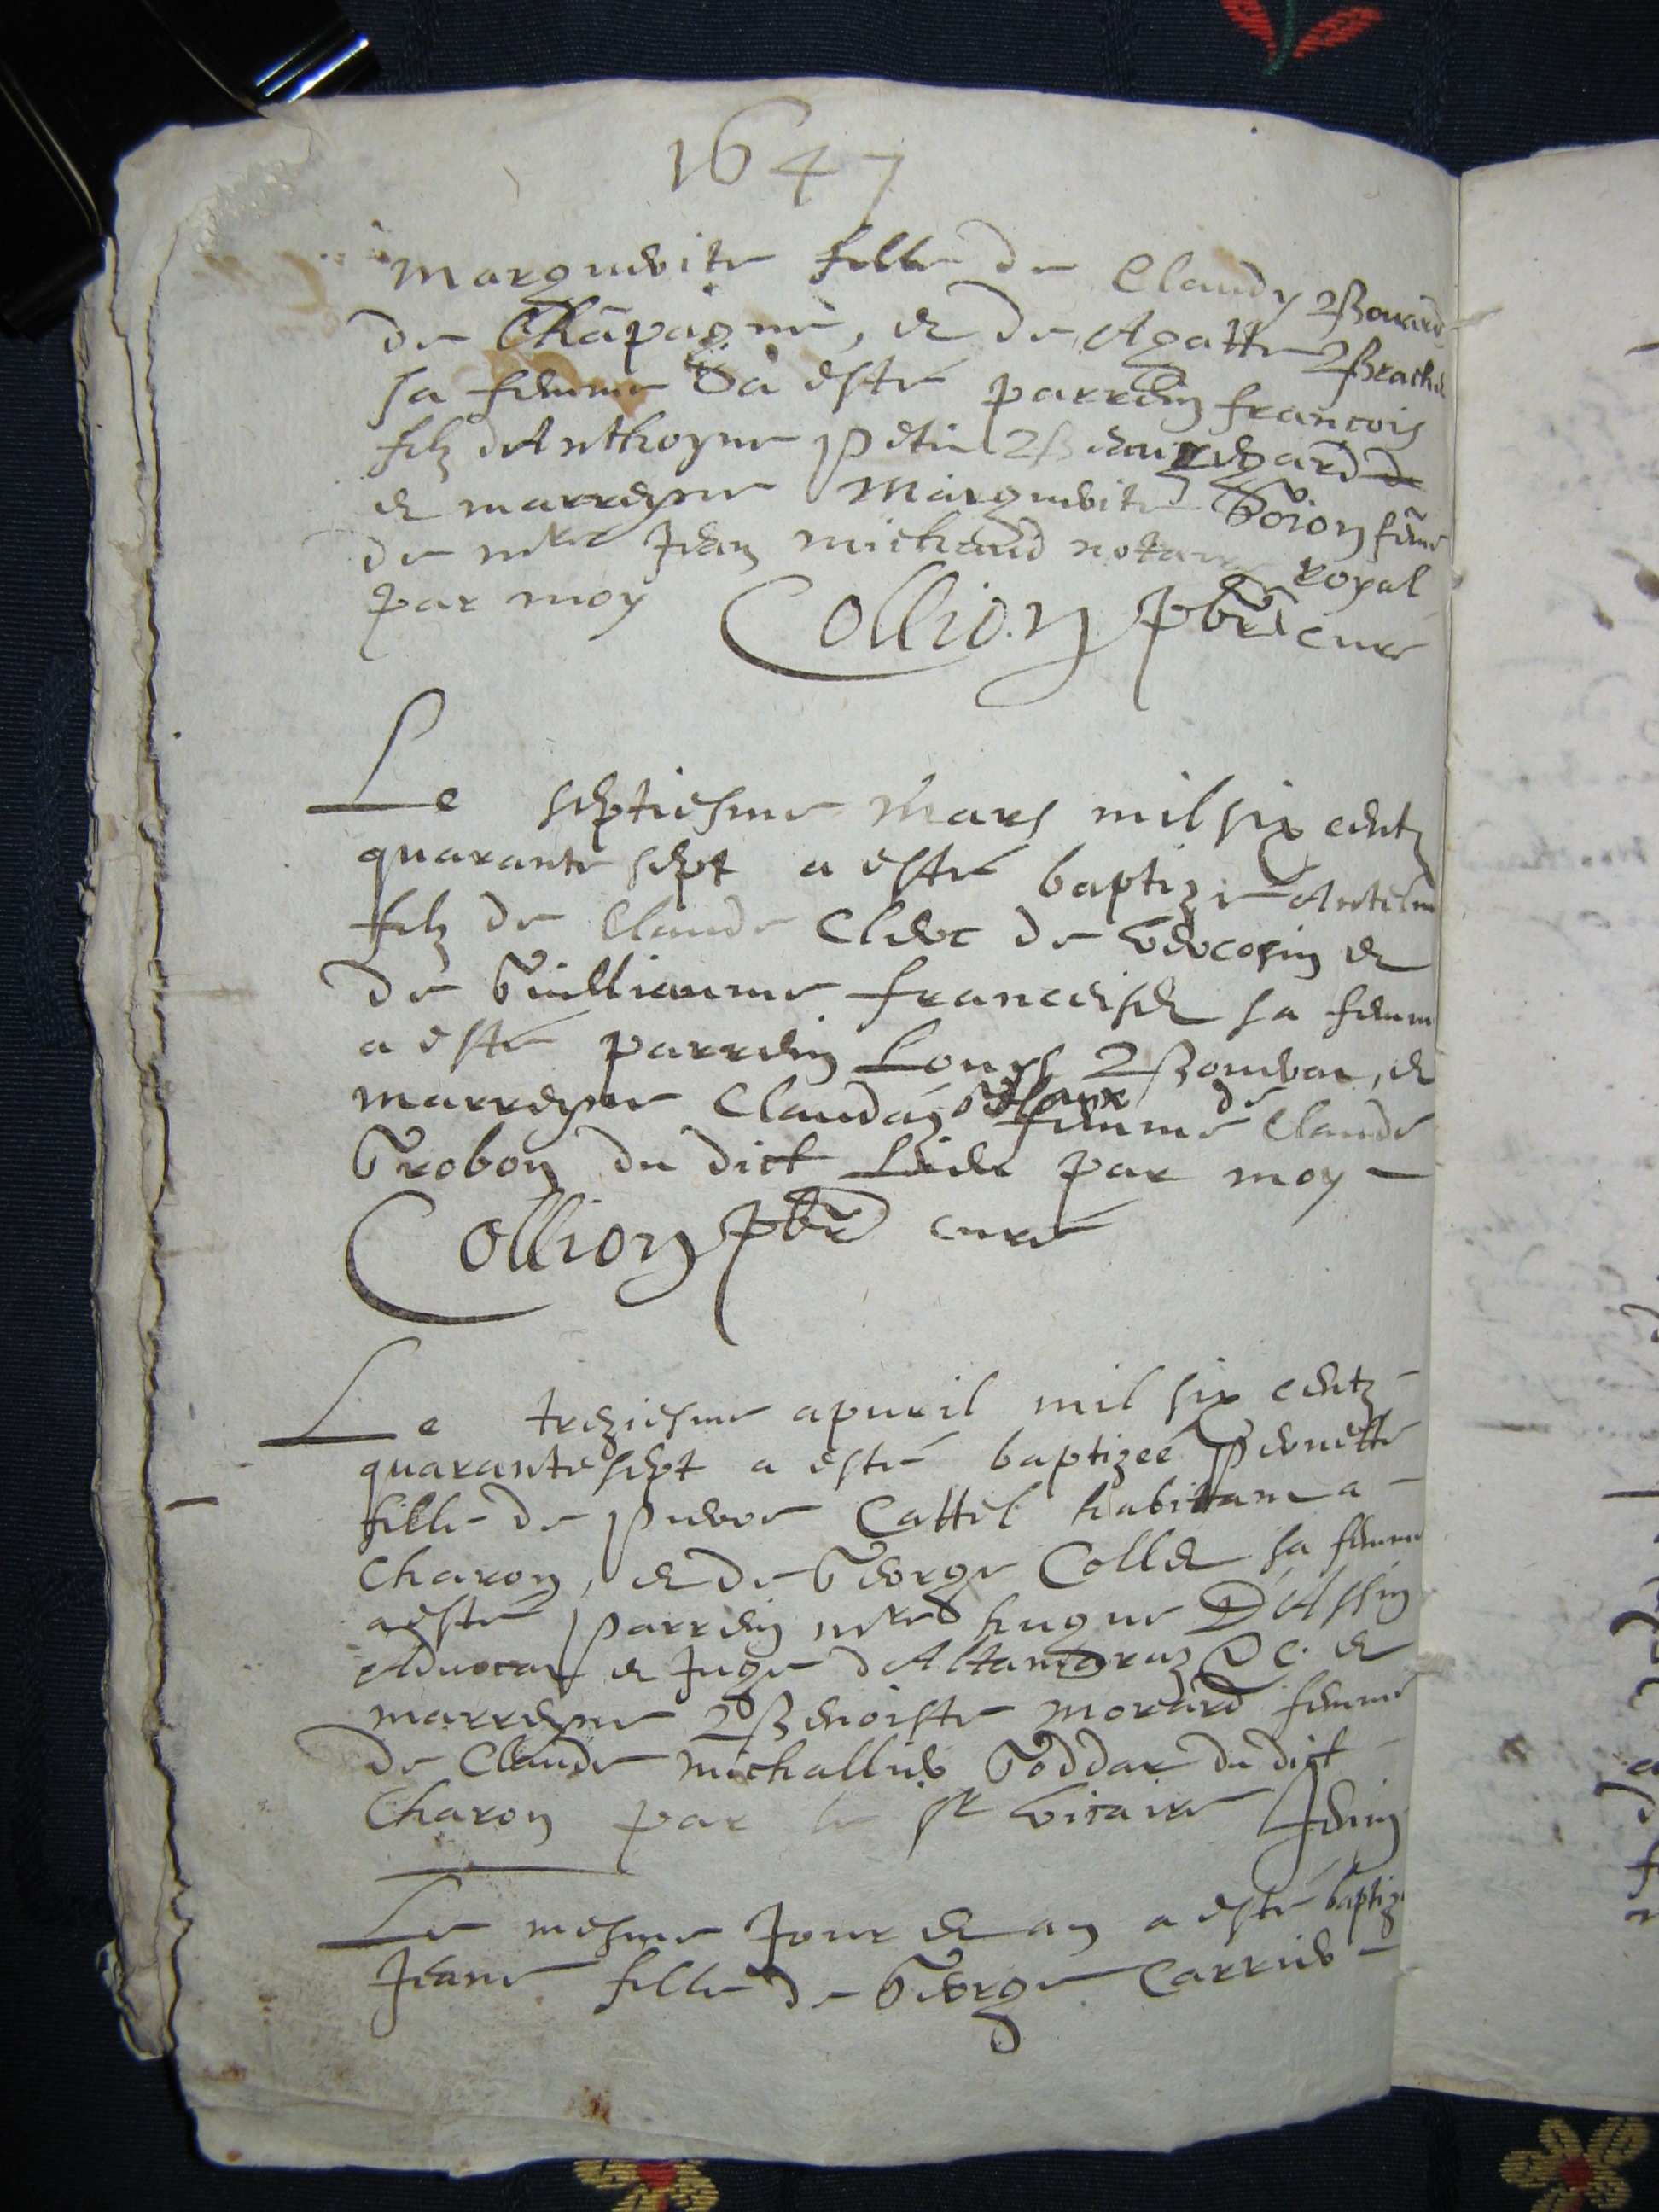 1647
Marguerite fille de Claudy
de Chãpagne, et de Agatte Brachet
sa femme a esté parrein francois
filz dAnthoyne Petit Beauregard
et marreyne Marguerite Goion feme
de mtre Jean michaud notaire royal
par moy Collion pbre curé
Le septiesme Mars mil six centz
quarante sept a esté baptizé Antelme
filz de Claude Clerc de Vercosin et
de Guilliaume franceiset sa femme
a esté parrein Louys et
marreyne Claudaz femme de Claude
Grobon du dict Lieu par moy
Collion pbre curé
Le treziesme apuril mil six centz
quarante sept a esté baptizée Pernette
fille de Pierre Cattel habitant a
Charon, et de George Collet sa femme
a esté Parrein mtre hugue DAssin
Aduocat et Juge et
marreyne Benoiste morard femme
de Claude michallier Goddar du dict
Charon par le sr vicaire Jenin
Le mesme Jour et an a esté baptizé
Jeane fille de George Carrier